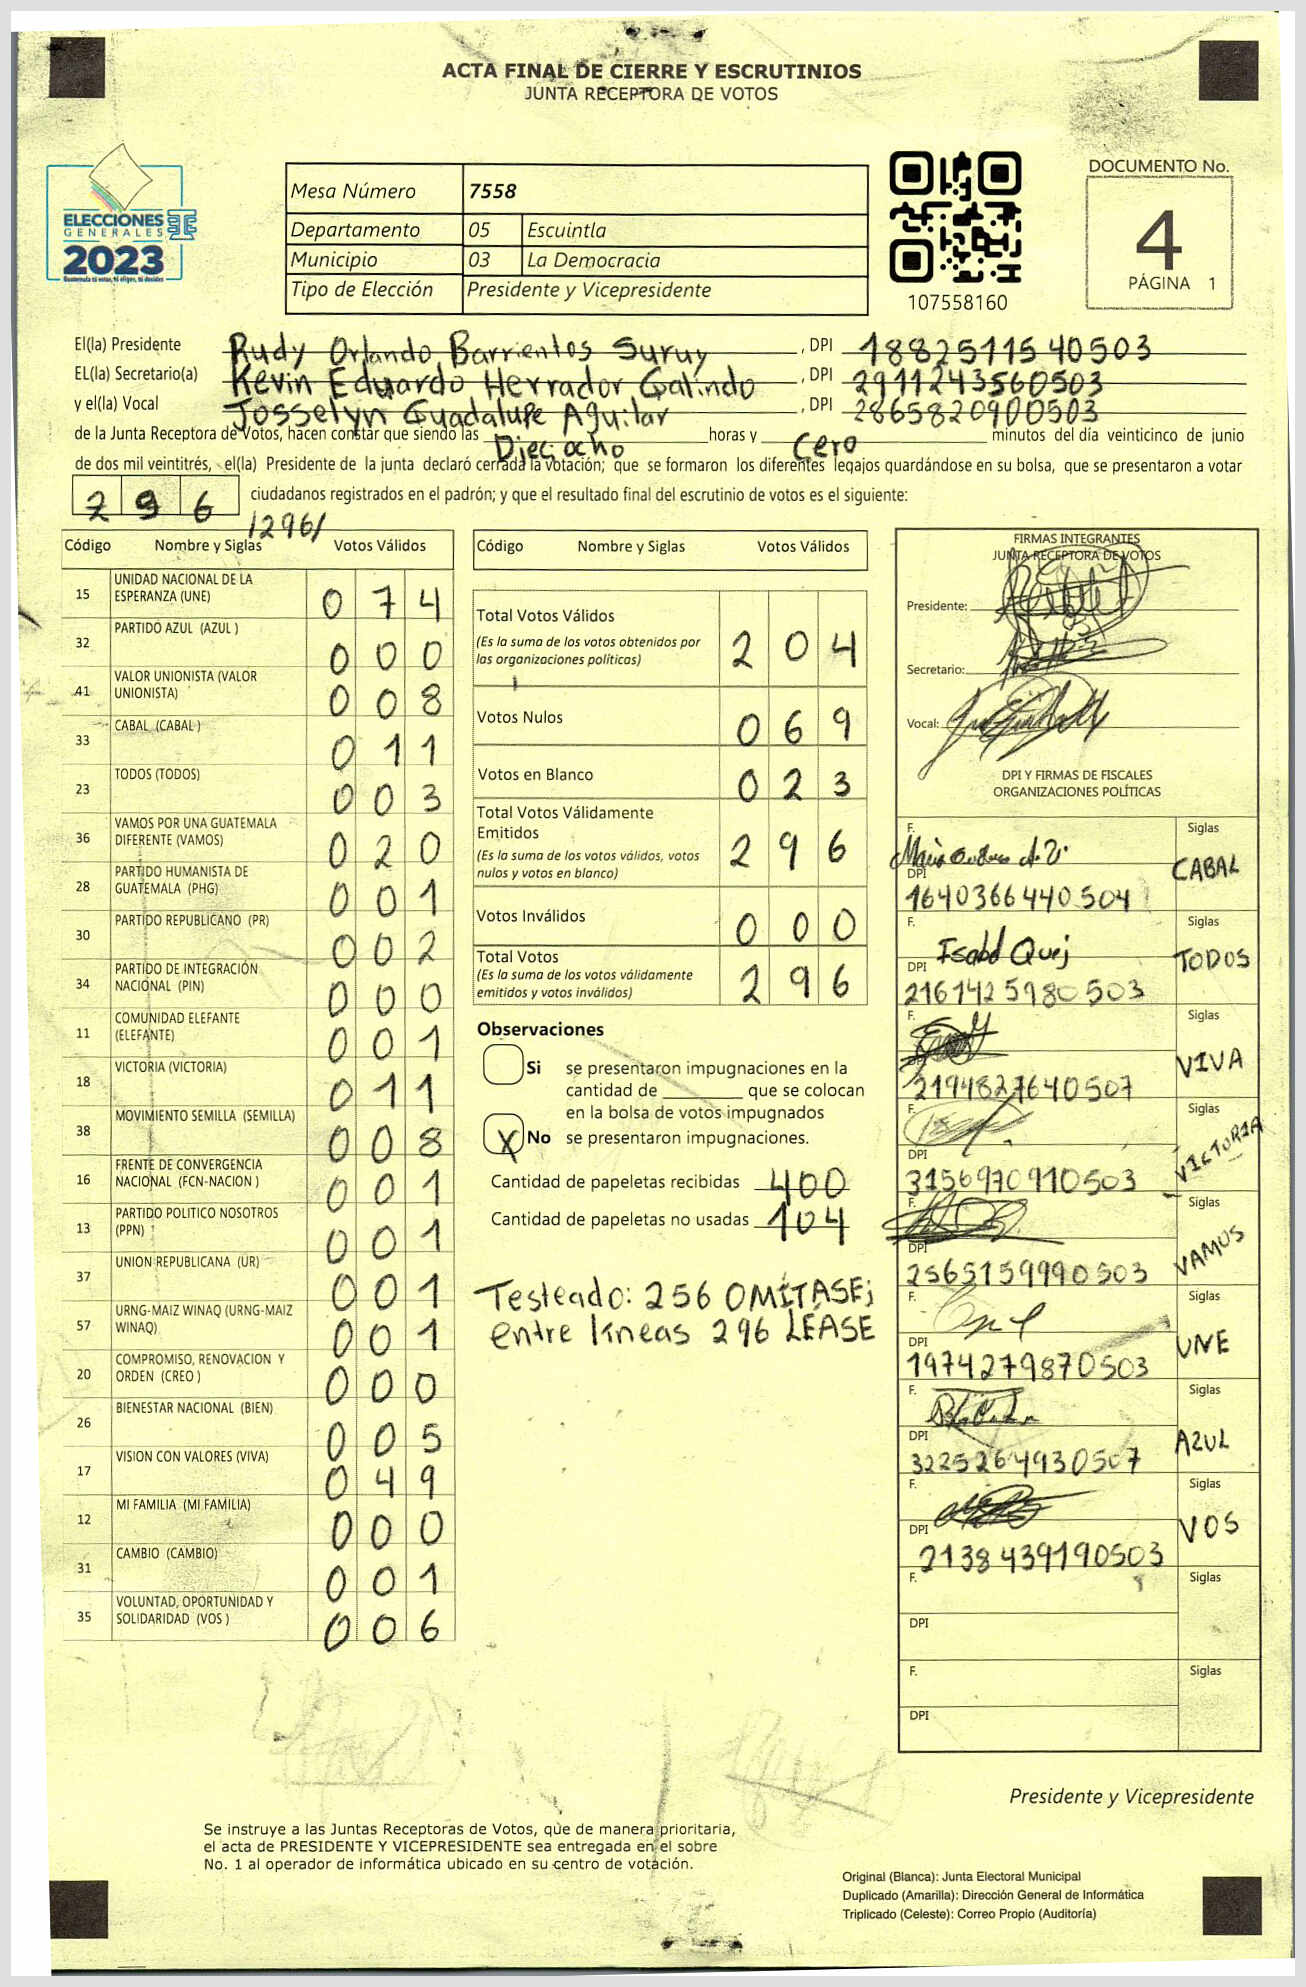 ACTA FINAL DE CIERRE Y ESCRUTINIOS
JUNTA RECEPTORA DE VOTOS
ELECCIONES
GENERALES
2023
Guatemala tú votas, tú eliges, tú decides
Mesa Número 7558
Departamento 05 Escuintla
Municipio 03 La Democracia
Tipo de Elección Presidente y Vicepresidente
107558160
DOCUMENTO No.
4
PÁGINA 1
El(la) Presidente Rudy Orlando Barrientos Suruy , DPI 1882511540503
EL(la) Secretario(a) Kevin Eduardo Herrador Galindo , DPI 2911243560503
y el(la) Vocal Josselyn Guadalupe Aguilar , DPI 2865820900503
de la Junta Receptora de Votos, hacen constar que siendo las Dieciocho horas y Cero minutos del día veinticinco de junio
de dos mil veintitrés, el(la) Presidente de la junta declaró cerrada la votación; que se formaron los diferentes legajos quardándose en su bolsa, que se presentaron a votar
296 ciudadanos registrados en el padrón; y que el resultado final del escrutinio de votos es el siguiente:
/296/
Código Nombre y Siglas Votos Válidos
15 UNIDAD NACIONAL DE LA ESPERANZA (UNE) 074
32 PARTIDO AZUL (AZUL ) 000
41 VALOR UNIONISTA (VALOR UNIONISTA) 008
33 CABAL (CABAL ) 011
23 TODOS (TODOS) 003
36 VAMOS POR UNA GUATEMALA DIFERENTE (VAMOS) 020
28 PARTIDO HUMANISTA DE GUATEMALA (PHG) 001
30 PARTIDO REPUBLICANO (PR) 002
34 PARTIDO DE INTEGRACIÓN NACIONAL (PIN) 000
11 COMUNIDAD ELEFANTE (ELEFANTE) 001
18 VICTORIA (VICTORIA) 011
38 MOVIMIENTO SEMILLA (SEMILLA) 008
16 FRENTE DE CONVERGENCIA NACIONAL (FCN-NACION ) 001
13 PARTIDO POLITICO NOSOTROS (PPN) 001
37 UNION REPUBLICANA (UR) 001
57 URNG-MAIZ WINAQ (URNG-MAIZ WINAQ) 001
20 COMPROMISO, RENOVACION Y ORDEN (CREO ) 000
26 BIENESTAR NACIONAL (BIEN) 005
17 VISION CON VALORES (VIVA) 049
12 MI FAMILIA (MI FAMILIA) 000
31 CAMBIO (CAMBIO) 001
35 VOLUNTAD, OPORTUNIDAD Y SOLIDARIDAD (VOS ) 006
Código Nombre y Siglas Votos Válidos
Total Votos Válidos 204
(Es la suma de los votos obtenidos por
las organizaciones políticas)
Votos Nulos 069
Votos en Blanco 023
Total Votos Válidamente
Emitidos 296
(Es la suma de los votos válidos, votos
nulos y votos en blanco)
Votos Inválidos 000
Total Votos 296
(Es la suma de los votos válidamente
emitidos y votos inválidos)
Observaciones
Si se presentaron impugnaciones en la
cantidad de ________ que se colocan
en la bolsa de votos impugnados
X No se presentaron impugnaciones.
Cantidad de papeletas recibidas 400
Cantidad de papeletas no usadas 104
Testeado: 256 OMÍTASE;
entre líneas 296 LÉASE
FIRMAS INTEGRANTES
JUNTA RECEPTORA DE VOTOS
Presidente:
Secretario:
Vocal:
DPI Y FIRMAS DE FISCALES
ORGANIZACIONES POLÍTICAS
F. Siglas
CABAL
DPI
1640366440504
F. Siglas
Isabel Quej
TODOS
DPI
2161425980503
F. Siglas
VIVA
2194827640507
F. Siglas
VICTORIA
DPI
3156970910503
F. Siglas
VAMOS
DPI
2565159990503
F. Siglas
UNE
DPI
1974279870503
F. Siglas
AZUL
DPI
3225264930507
F. Siglas
VOS
DPI
2138439190503
F. Siglas
DPI
F. Siglas
DPI
Presidente y Vicepresidente
Se instruye a las Juntas Receptoras de Votos, que de manera prioritaria,
el acta de PRESIDENTE Y VICEPRESIDENTE sea entregada en el sobre
No. 1 al operador de informática ubicado en su centro de votación.
Original (Blanca): Junta Electoral Municipal
Duplicado (Amarilla): Dirección General de Informática
Triplicado (Celeste): Correo Propio (Auditoría)